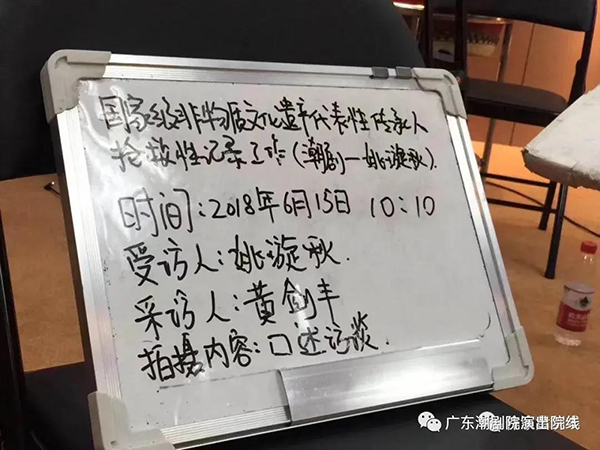 国家级非物质文化遗产代表性传承人
抢救性记录工作(潮剧—姚璇秋).
时间:2018年6月15日 10:10
受访人:姚璇秋.
采访人:黄剑丰
拍摄内容:口述访谈.
广东潮剧院演出院线